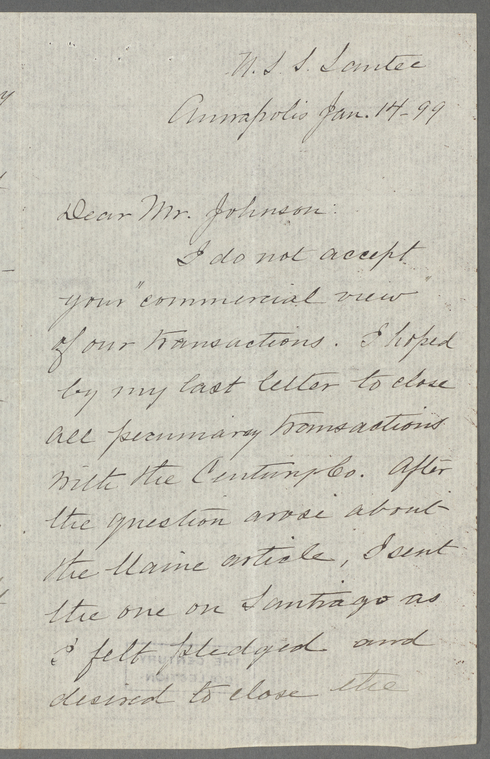 U.S.S. Santee
Annapolis Jan. 14-99
Dear Mr. Johnson:
I do not accept
your "commercial view
of our transactions. I hoped
by my last letter to close
all pecuniary transactions
with the Century Co. After
the question arose about
the Maine article, I sent
the one on Santiago as
I felt pledged and
desired to close the
THE CENTURY
COLLECTION